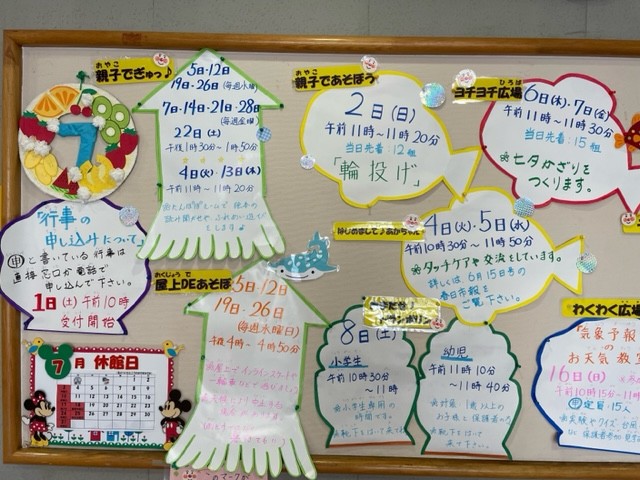 7
おやこ
親子でぎゅっ♪
5日・12日
19日・26日(毎週水曜)
7日・14日・21日・28日
(毎週金曜)
22日(土)
午後1時30分〜1時50分
4日(火)・13日(木)
午前11時〜11時20分
おやこ
親子であそぼう
2日(日)
午前11時〜11時20分
当日先着:12組
「輪投げ」
ひろば
ヨチヨチ広場
6日(木)・7日(金)
午前11時〜11時30分
当日先着:15組
※七夕かざりを
つくります。
「行事の
申し込みについて」
申と書いている行事は
直接窓口か電話で
申し込んで下さい。
1日(土)午前10時
受付開始
はじめまして♪あかちゃん
4日(火)・5日(水)
午前10時30分〜11時
※タッチケアや交流をしています。
詳しくは6月15日号の
春日市報を
ご覧下さい。
おくじょう で
屋上DEあそぼ
5日・12日
19日・26日
(毎週水曜日)
午後4時〜4時50分
屋上でインラインスケート
トランポリン
8日(土)
小学生
午前10時30分
〜11時
※小学生専用の
時間です。
幼児
午前11時10分
〜11時40分
※対象 1歳以上の
お子様と保護者の方
わくわく広場
「気象予報
の
お天気教室
16日(日)
午前10時15分〜11時
申 定員:15人
※実験やクイズ
7月 休館日
このマークが